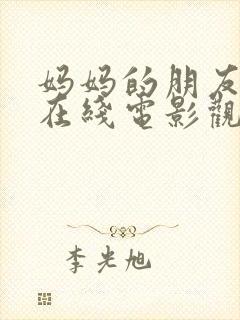 妈妈的朋友
在綫電影觀
李光旭